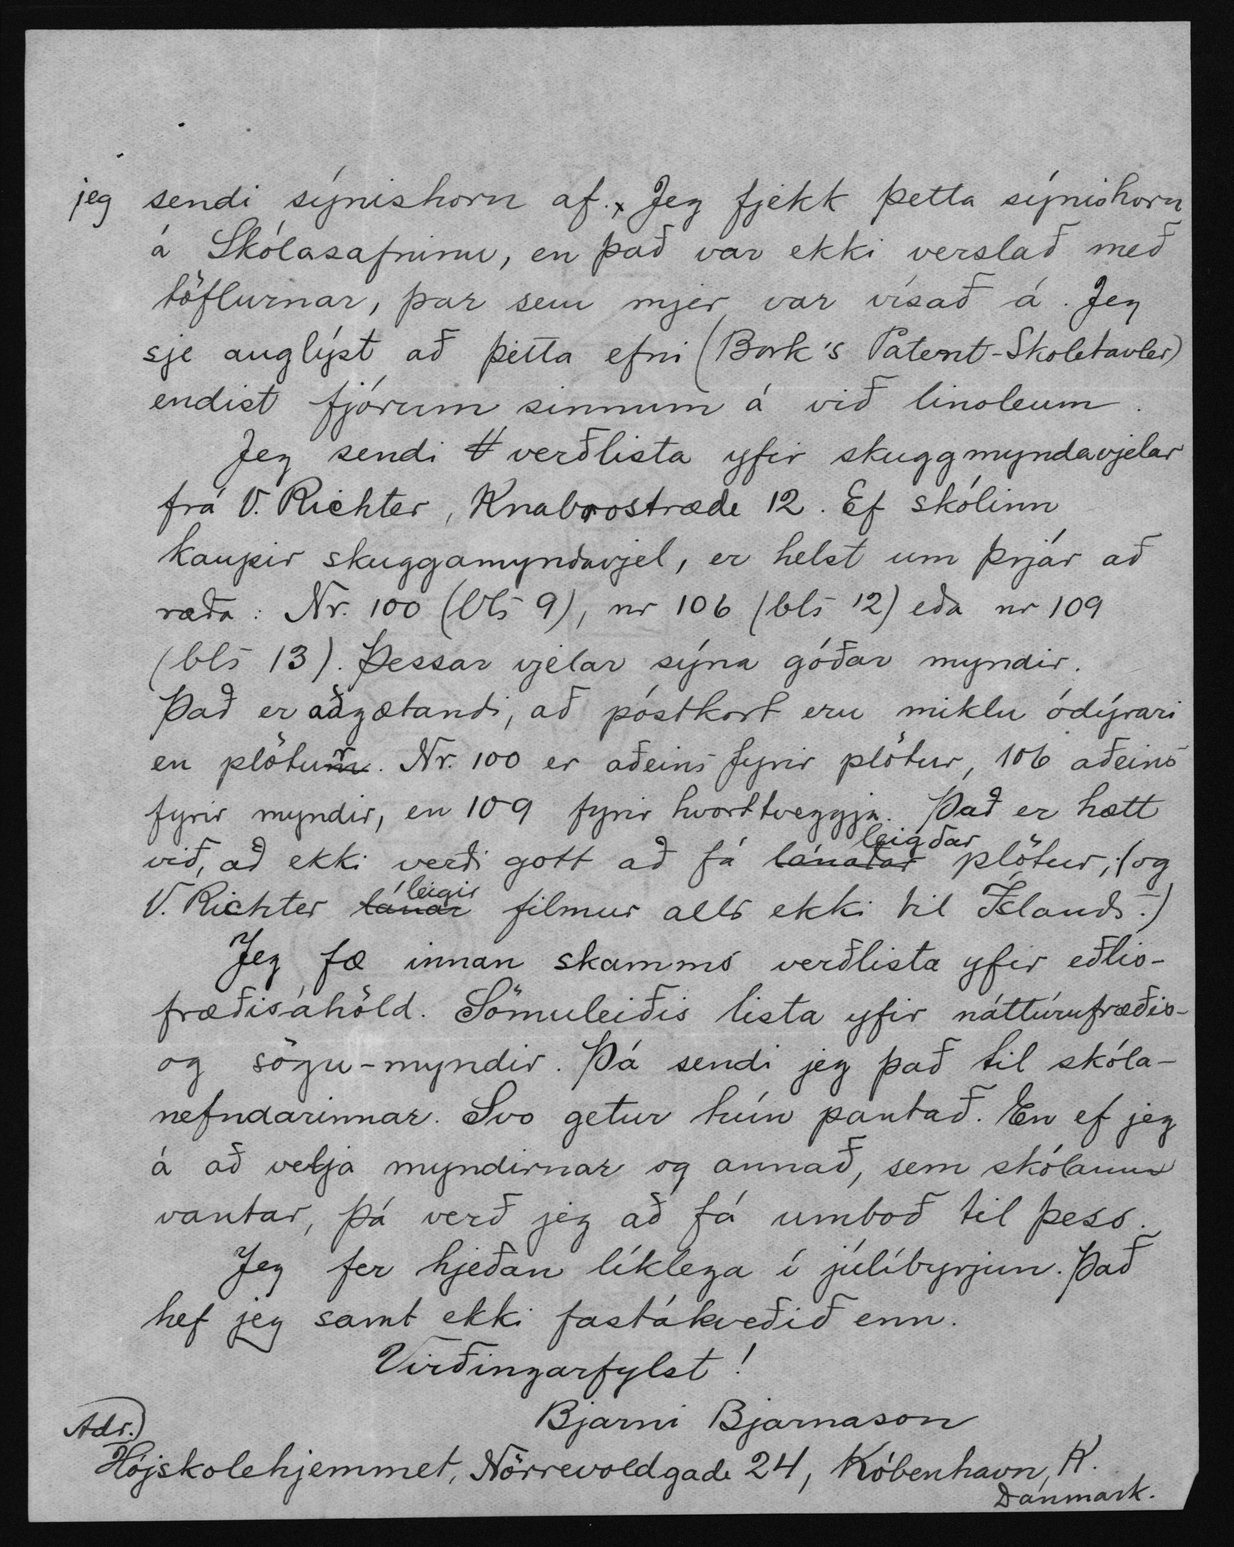 jeg sendi sýnishorn af. x Jeg fjekk þetta sýnishorn
á Skólasafninu, en það var ekki verslað með
töflurnar, þar sem mjer var vísað á. Jeg
sje auglýst að þetta efni (Bork's Patent-Skoletavler)
endist fjórum sinnum á við linoleum.
Jeg sendi verðlista yfir skuggmyndavjelar
frá V. Richter, Knabrostræde 12. Ef skólinn
kaupir skuggamyndavjel, er helst um þrjár að
ræða: Nr. 100 (bls 9), nr 106 (bls 12) eða nr 109
(bls 13). Þessar vjelar sýna góðar myndir.
Það er aðgætandi, að póstkort eru miklu ódýrari
en plötur. Nr. 100 er aðeins fyrir plötur, 106 aðeins
fyrir myndir, en 109 fyrir hvorttveggja. Það er hætt
við, að ekki verði gott að fá lánaðar leigðar plötur, (og
V. Richter lánar leigir filmur alls ekki til Íslands.)
Jeg fæ innan skamms verðlista yfir eðlis-
fræðisáhöld. Sömuleiðis lista yfir náttúrufræðis-
og sögu-myndir. Þá sendi jeg það til skóla-
nefndarinnar. Svo getur hún pantað. En ef jeg
á að velja myndirnar og annað, sem skólann
vantar, þá verð jeg að fá umboð til þess.
Jeg fer hjeðan líklega í júlíbyrjun. Það
hef jeg samt ekki fastákveðið enn.
Virðingarfylst!
Bjarni Bjarnason
Adr.)
Højskolehjemmet, Nörrevoldgade 24, Köbenhavn, K.
Danmark.